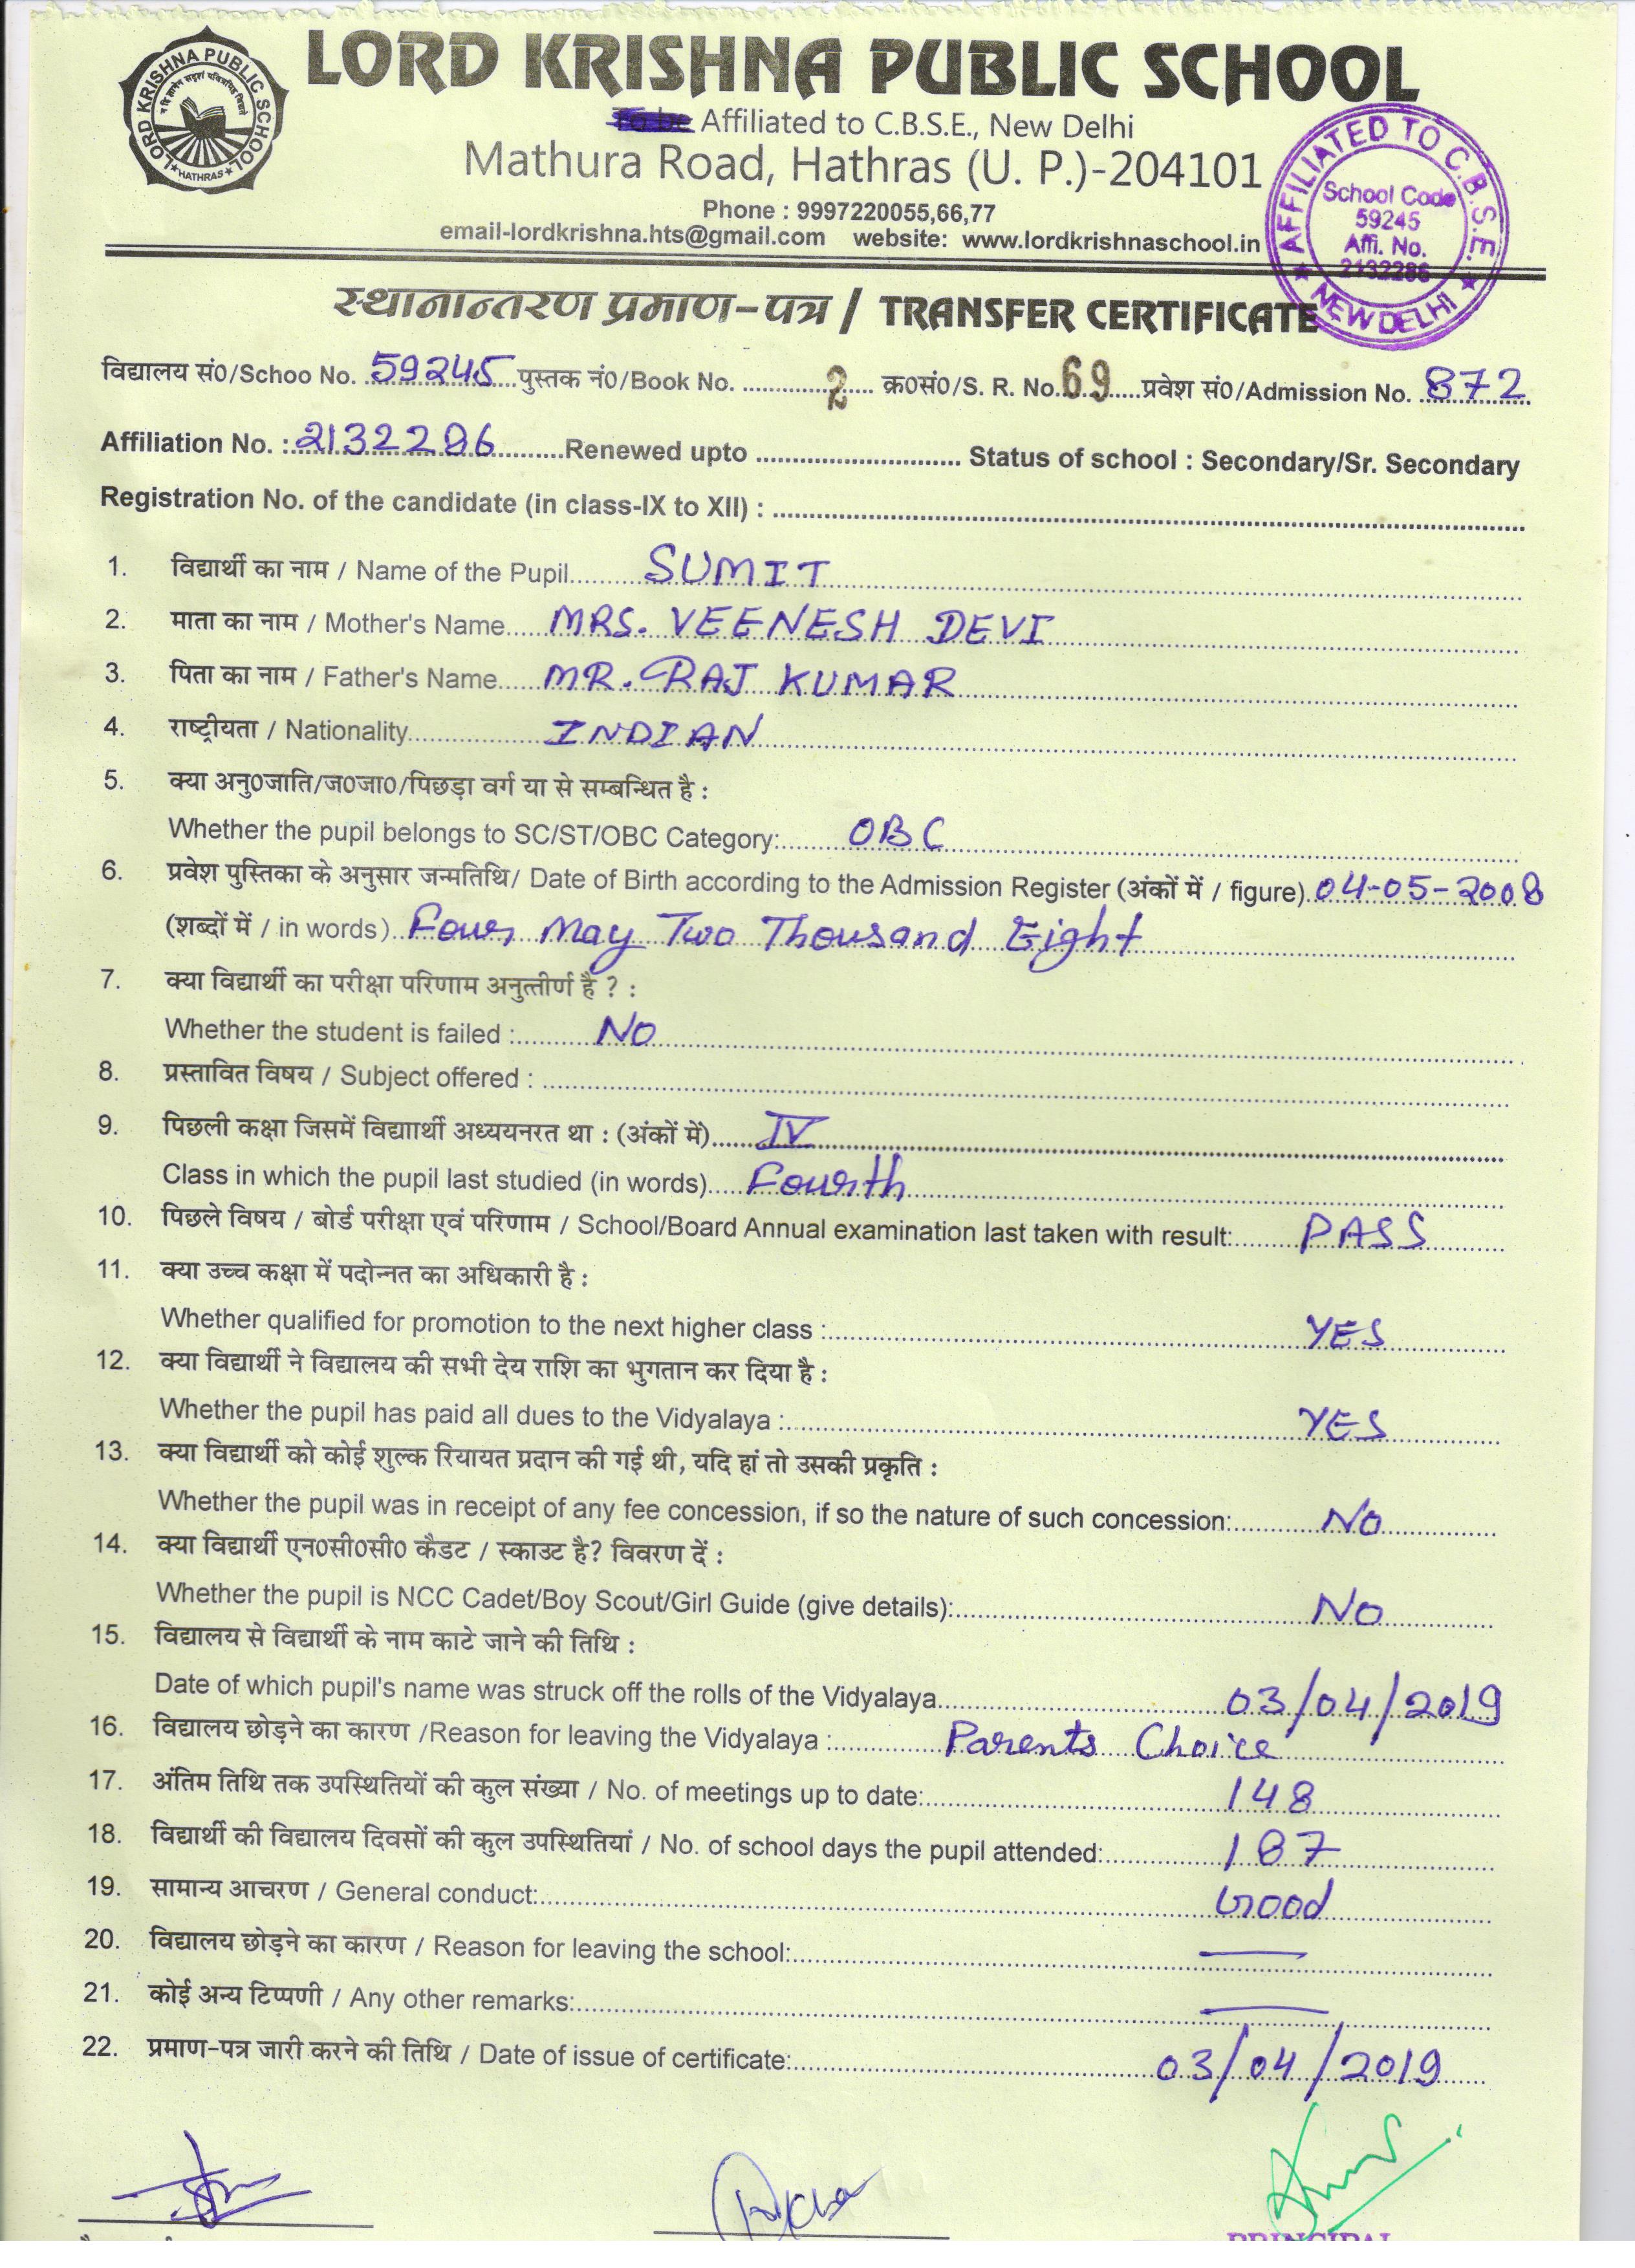 LORD KRISHNA PUBLIC SCHOOL
LORD KRISHNA PUBLIC SCHOOL
★ HATHRAS ★
Affiliated to C.B.S.E., New Delhi
Mathura Road, Hathras (U. P.)-204101
Phone : 9997220055,66,77
email-lordkrishna.hts@gmail.com website: www.lordkrishnaschool.in
AFFILIATED TO C.B.S.E.
School Code
59245
Affi. No.
2132286
★ NEW DELHI ★
स्थानान्तरण प्रमाण-पत्र / TRANSFER CERTIFICATE
विद्यालय सं0/Schoo No. 59245 पुस्तक नं0/Book No. 2 क्र0सं0/S. R. No. 69 प्रवेश सं0/Admission No. 872
Affiliation No. : 2132286 Renewed upto Status of school : Secondary/Sr. Secondary
Registration No. of the candidate (in class-IX to XII) :
1. विद्यार्थी का नाम / Name of the Pupil SUMIT
2. माता का नाम / Mother's Name MRS. VEENESH DEVI
3. पिता का नाम / Father's Name MR. RAJ KUMAR
4. राष्ट्रीयता / Nationality INDIAN
5. क्या अनु0जाति/ज0जा0/पिछड़ा वर्ग या से सम्बन्धित है :
Whether the pupil belongs to SC/ST/OBC Category: OBC
6. प्रवेश पुस्तिका के अनुसार जन्मतिथि/ Date of Birth according to the Admission Register (अंकों में / figure) 04-05-2008
(शब्दों में / in words) Four May Two Thousand Eight
7. क्या विद्यार्थी का परीक्षा परिणाम अनुत्तीर्ण है ? :
Whether the student is failed : NO
8. प्रस्तावित विषय / Subject offered :
9. पिछली कक्षा जिसमें विद्याार्थी अध्ययनरत था : (अंकों में) IV
Class in which the pupil last studied (in words) Fourth
10. पिछले विषय / बोर्ड परीक्षा एवं परिणाम / School/Board Annual examination last taken with result: PASS
11. क्या उच्च कक्षा में पदोन्नत का अधिकारी है :
Whether qualified for promotion to the next higher class : YES
12. क्या विद्यार्थी ने विद्यालय की सभी देय राशि का भुगतान कर दिया है :
Whether the pupil has paid all dues to the Vidyalaya : YES
13. क्या विद्यार्थी को कोई शुल्क रियायत प्रदान की गई थी, यदि हां तो उसकी प्रकृति :
Whether the pupil was in receipt of any fee concession, if so the nature of such concession: NO
14. क्या विद्यार्थी एन0सी0सी0 कैडट / स्काउट है? विवरण दें :
Whether the pupil is NCC Cadet/Boy Scout/Girl Guide (give details): NO
15. विद्यालय से विद्यार्थी के नाम काटे जाने की तिथि :
Date of which pupil's name was struck off the rolls of the Vidyalaya 03/04/2019
16. विद्यालय छोड़ने का कारण /Reason for leaving the Vidyalaya : Parents Choice
17. अंतिम तिथि तक उपस्थितियों की कुल संख्या / No. of meetings up to date: 148
18. विद्यार्थी की विद्यालय दिवसों की कुल उपस्थितियां / No. of school days the pupil attended: 187
19. सामान्य आचरण / General conduct: Good
20. विद्यालय छोड़ने का कारण / Reason for leaving the school:
21. कोई अन्य टिप्पणी / Any other remarks:
22. प्रमाण-पत्र जारी करने की तिथि / Date of issue of certificate: 03/04/2019
PRINCIPAL